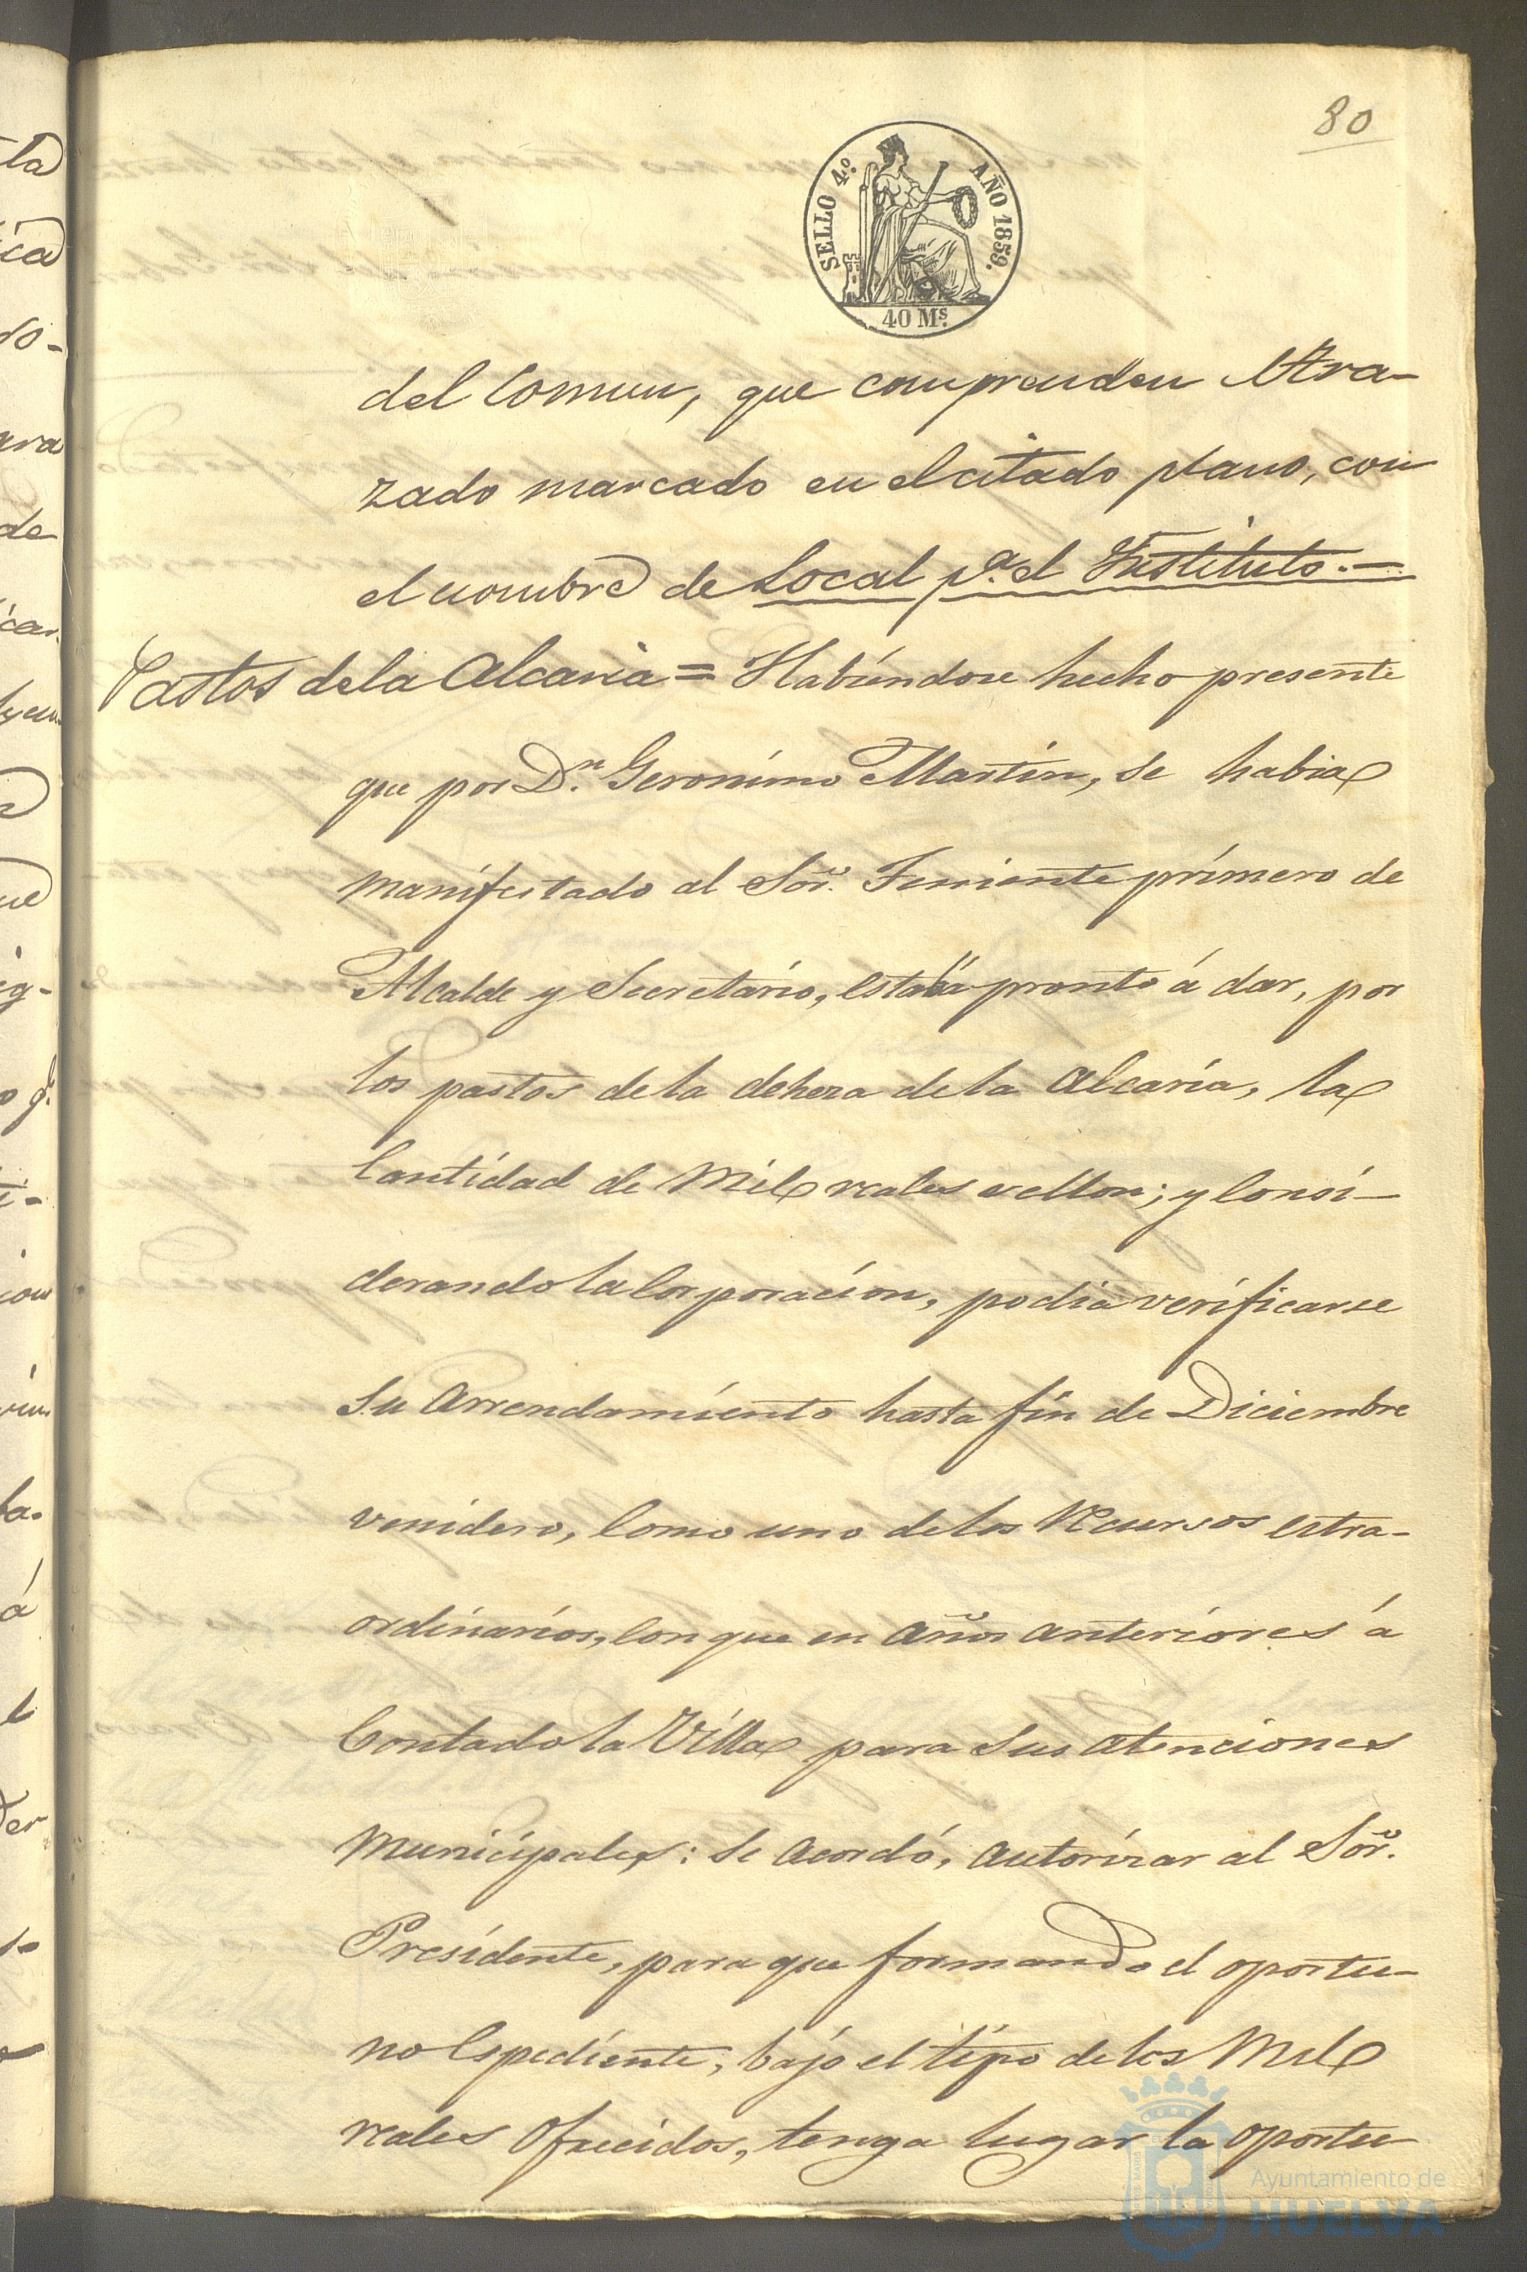 80
SELLO 4.º AÑO 1859.
40 M.s
del Comun, que comprenden el tra-
zado marcado en el citado plano, con
el nombre de Local p.a el Instituto.-
Pastos de la Alcaria = Habiendose hecho presente
que por D.n Geronimo Martin, se habia
manifestado al Sor. Teniente primero de
Alcalde y Secretario, estaba pronto á dar, por
los pastos de la deheza de la Alcaria, la
Cantidad de Mil reales vellon; y Consi-
derando la Corporacion, podia verificarse
su Arrendamiento hasta fin de Diciembre
venidero, Como uno de los Recursos estra-
ordinarios, Con que en Años anteriores á
Contado la Villa para sus atenciones
Municipales: se Acordó, Autorizar al Sor.
Presidente, para que formando el oportu-
no Espediente, bajo el tipo de los Mil
reales Ofrecidos, tenga lugar la oportu-
Ayuntamiento de
HUELVA